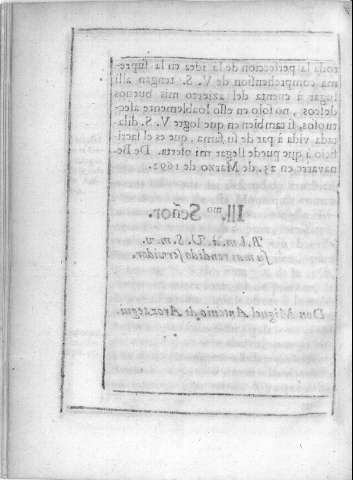 toda la perfeccion de la idea en la supre-
ma comprehension de V. S. tengan alli
lugar à cuenta del azierto mis buenos
deseos, no solo en esso loablemente afec-
tuosos, si tambien en que logre V. S. dila-
tada vida à par de su fama, que es el sacri-
ficio à que puede llegar mi oferta. De Be-
navarre en 23. de Marzo de 1692.
Ill.mo Señor.
B. l. m. d. V. S. m. v.
su mas rendido servidor.
Don Miguel Antonio de Arozaegui.